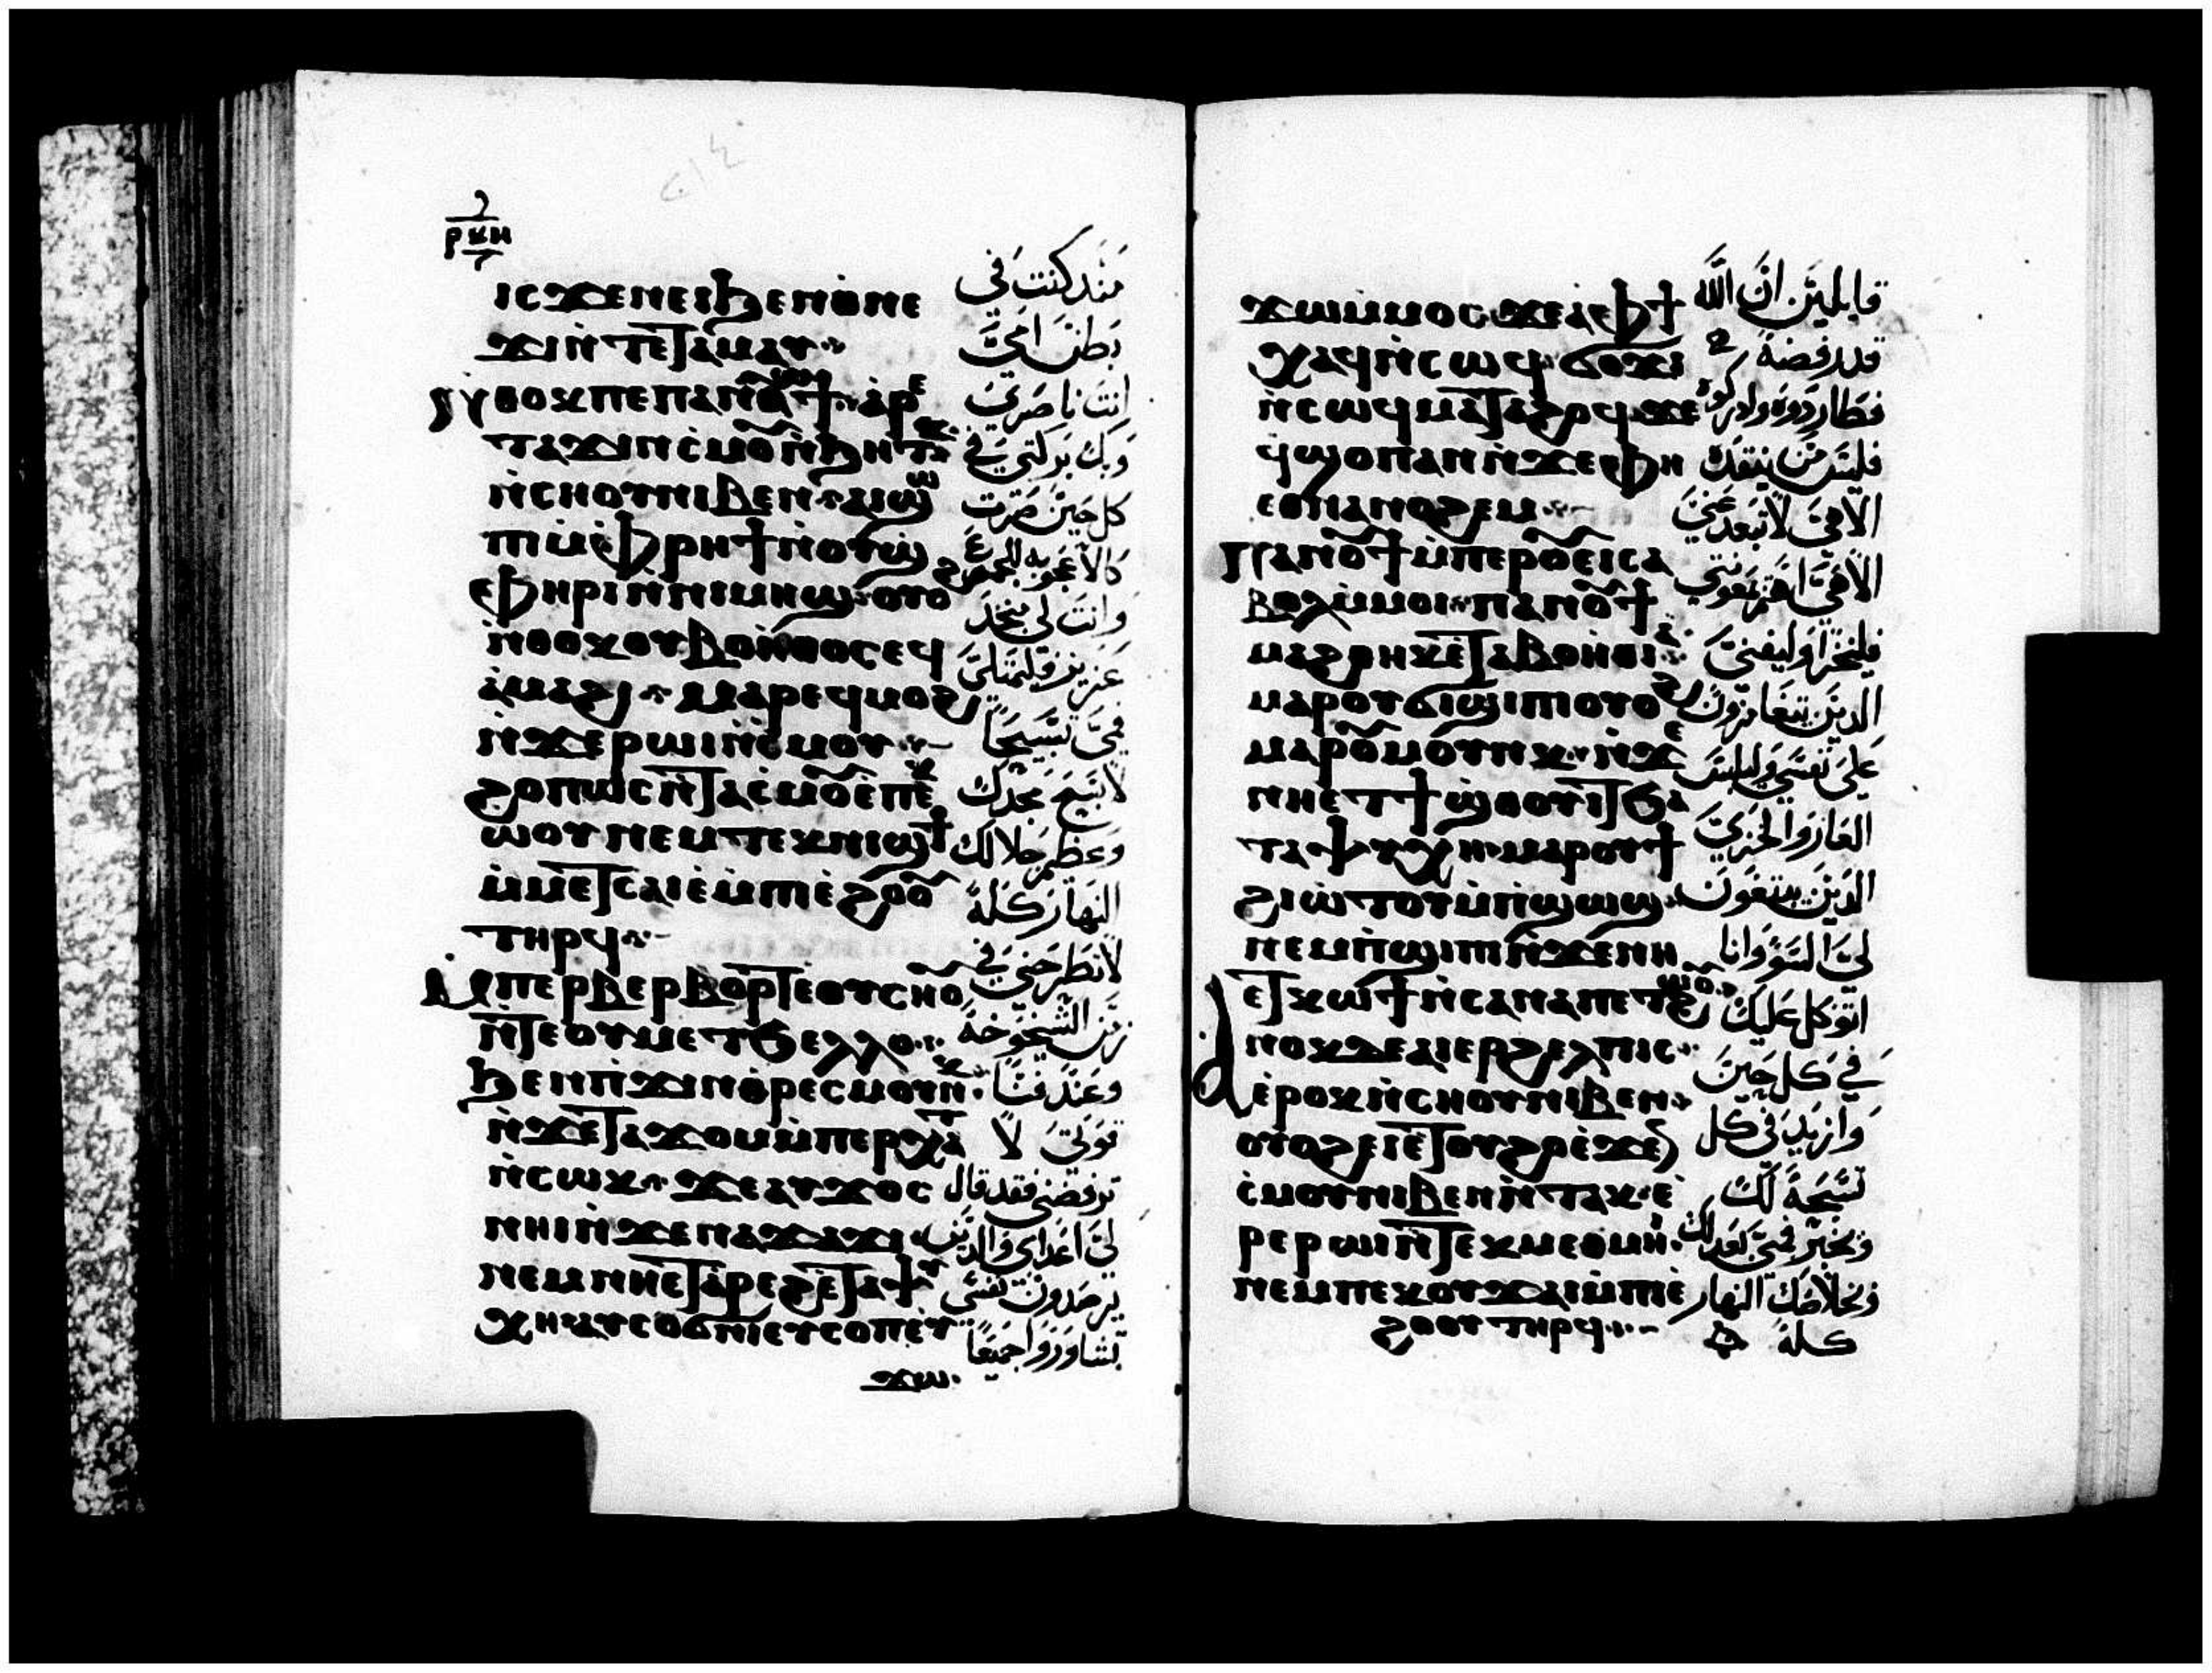 ⲣⲕⲏ
ⲓⲥϫⲉⲛⲉⲓϧⲉⲛⲑⲛⲉ
ϫⲓⲛ̀ⲧⲉⲧⲁⲙⲁⲩ
ⲛ̀ⲑⲟⲕⲡⲉⲡⲁⲛⲟⲩϯ ⲁⲣⲉ
ⲧⲁϫⲓⲛⲥ̀ⲙⲟⲩⲛ̀ϧⲏⲧⲕ
ⲛ̀ⲥⲏⲟⲩⲛⲓⲃⲉⲛ ⲁⲓϣⲱ
ⲡⲓⲙ̀ⲫⲣⲏϯⲛ̀ⲟⲩϣ
ⲫⲏⲣⲓⲛ̀ⲛⲓⲙⲏϣ ⲟⲩⲟϩ
ⲛ̀ⲑⲟⲕⲟⲩⲃⲟⲏ̀ⲑⲟⲥⲉϥ
ⲁ̀ⲙⲁϩⲓ ⲙⲁⲣⲉϥⲙⲟϩ
ⲛ̀ϫⲉⲣⲱⲓⲛ̀ⲥ̀ⲙⲟⲩ
ϩⲟⲡⲱⲥⲛ̀ⲧⲁⲥ̀ⲙⲟⲩⲉ̀ⲡⲉⲕ
ⲱ̀ⲟⲩⲛⲉⲙⲧⲉⲕⲛⲓϣϯ
ⲙ̀ⲙⲉⲧⲥⲁⲓⲉ̀ⲙ̀ⲡⲓⲉ̀ϩⲟⲟⲩ
ⲧⲏⲣϥ
ⲙ̀ⲡⲉⲣⲃⲉⲣⲃⲟⲣⲧⲉⲟⲩⲥⲏⲟⲩ
ⲛ̀ⲧⲉⲟⲩⲙⲉⲧϧⲉⲗⲗⲟ
ϧⲉⲛⲡ̀ϫⲓⲛⲑⲣⲉⲥⲙⲟⲩⲛⲕ
ⲛ̀ϫⲉⲧⲁϫⲟⲙⲙ̀ⲡⲉⲣⲭⲁⲧ
ⲛ̀ⲥⲱⲕ ϫⲉⲁⲩϫⲟⲥ
ⲛⲏⲓⲛ̀ϫⲉⲛⲁϫⲁϫⲓ
ⲛⲉⲙⲛⲏⲉⲧⲁⲣⲉϩⲉⲧⲁⲯⲩ
ⲭⲏⲁⲩⲥⲟϭⲛⲓⲉⲩⲥⲟⲡⲉⲩ
ϫⲱ
منذ كنت في
بطن امي
انت ناصري
وبك بركتي في
كل حين صرت
كالاعجوبه للجموع
وانت لي منجد
عزيز فليمتلي
فمي تسبيحاً
لاسبح مجدك
وعظم جلالك
النهار كله
لا تطرحني في
زمن الشيخوخه
وعند فنا
قوتي لا
ترفضني فقد قال
لي اعداي والذين
يرصدون نفسي
تشاوروا جميعاً
ϫⲱⲙ̀ⲙⲟⲥϫⲉⲁ̀ⲫϯ
ⲭⲁϥⲛ̀ⲥⲱϥ ϭⲟϫⲓ
ⲛ̀ⲥⲱϥⲙⲁⲧⲁϩⲟϥϫⲉ
ϥ̀ϣⲟⲡⲁⲛⲛ̀ϫⲉⲫⲏ
ⲉⲑⲛⲁⲛⲟϩⲉⲙ
ⲡⲁⲛⲟⲩϯⲙ̀ⲡⲉⲣⲟⲩⲉⲓⲥⲁ
ⲃⲟⲗⲙ̀ⲙⲟⲓ ⲡⲁⲛⲟⲩϯ
ⲙⲁϩⲑⲏⲕⲉ̀ⲧⲁⲃⲟⲏⲑⲓⲁ
ⲙⲁⲣⲟⲩϭⲓϣⲓⲡⲓⲟⲩⲟϩ
ⲙⲁⲣⲟⲩⲙⲟⲩⲛⲕ ⲛ̀ϫⲉ
ⲛⲏⲉⲧϯϣ̀ⲑⲟⲩⲓⲧϧⲁ
ⲧⲁⲯⲩⲭⲏ ⲙⲁⲣⲟⲩϯ
ϩⲓⲱ̀ⲧⲟⲩⲙ̀ⲡ̀ϣⲱϣ
ⲛⲉⲙⲡ̀ϣⲓⲡⲓⲛ̀ϫⲉⲛⲏ
ⲉⲧⲕⲱϯⲛ̀ⲥⲁⲛⲁⲡⲉⲧϩⲱⲟⲩ
ⲁⲛⲟⲕⲇⲉⲁⲓⲉⲣϩⲉⲗⲡⲓⲥ
ⲉ̀ⲣⲟⲕⲛ̀ⲥⲏⲟⲩⲛⲓⲃⲉⲛ
ⲟⲩⲟϩⲉⲓⲉ̀ⲧⲟⲩϩⲟⲉ̀ϫⲉⲛ
ⲥ̀ⲙⲟⲩⲛⲓⲃⲉⲛⲛ̀ⲧⲁⲕ ⲉ̀
ⲣⲉⲣⲱⲓⲛ̀ⲧⲉⲕⲙⲉⲑⲙⲏⲓ
ⲛⲉⲙⲡⲉⲕⲟⲩϫⲁⲓⲙ̀ⲡⲓⲉ̀
ϩⲟⲟⲩ ⲧⲏⲣϥ
قايلين ان الله
قد رفضه
فطاردوه وادركوه
فليس من ينقذه
الاهي لا تبعد عني
الاهي اهتم بعونتي
فليخزا وليفنى
الذين يتغامزون
على نفسي وليلبس
العار والخزي
الذين يبتغون
لي السو وانا
اتوكل عليك
في كل حين
وازيد في كل
تسبحة لك
ويخبر فمي بعدلك
وبخلاصك النهار
كله